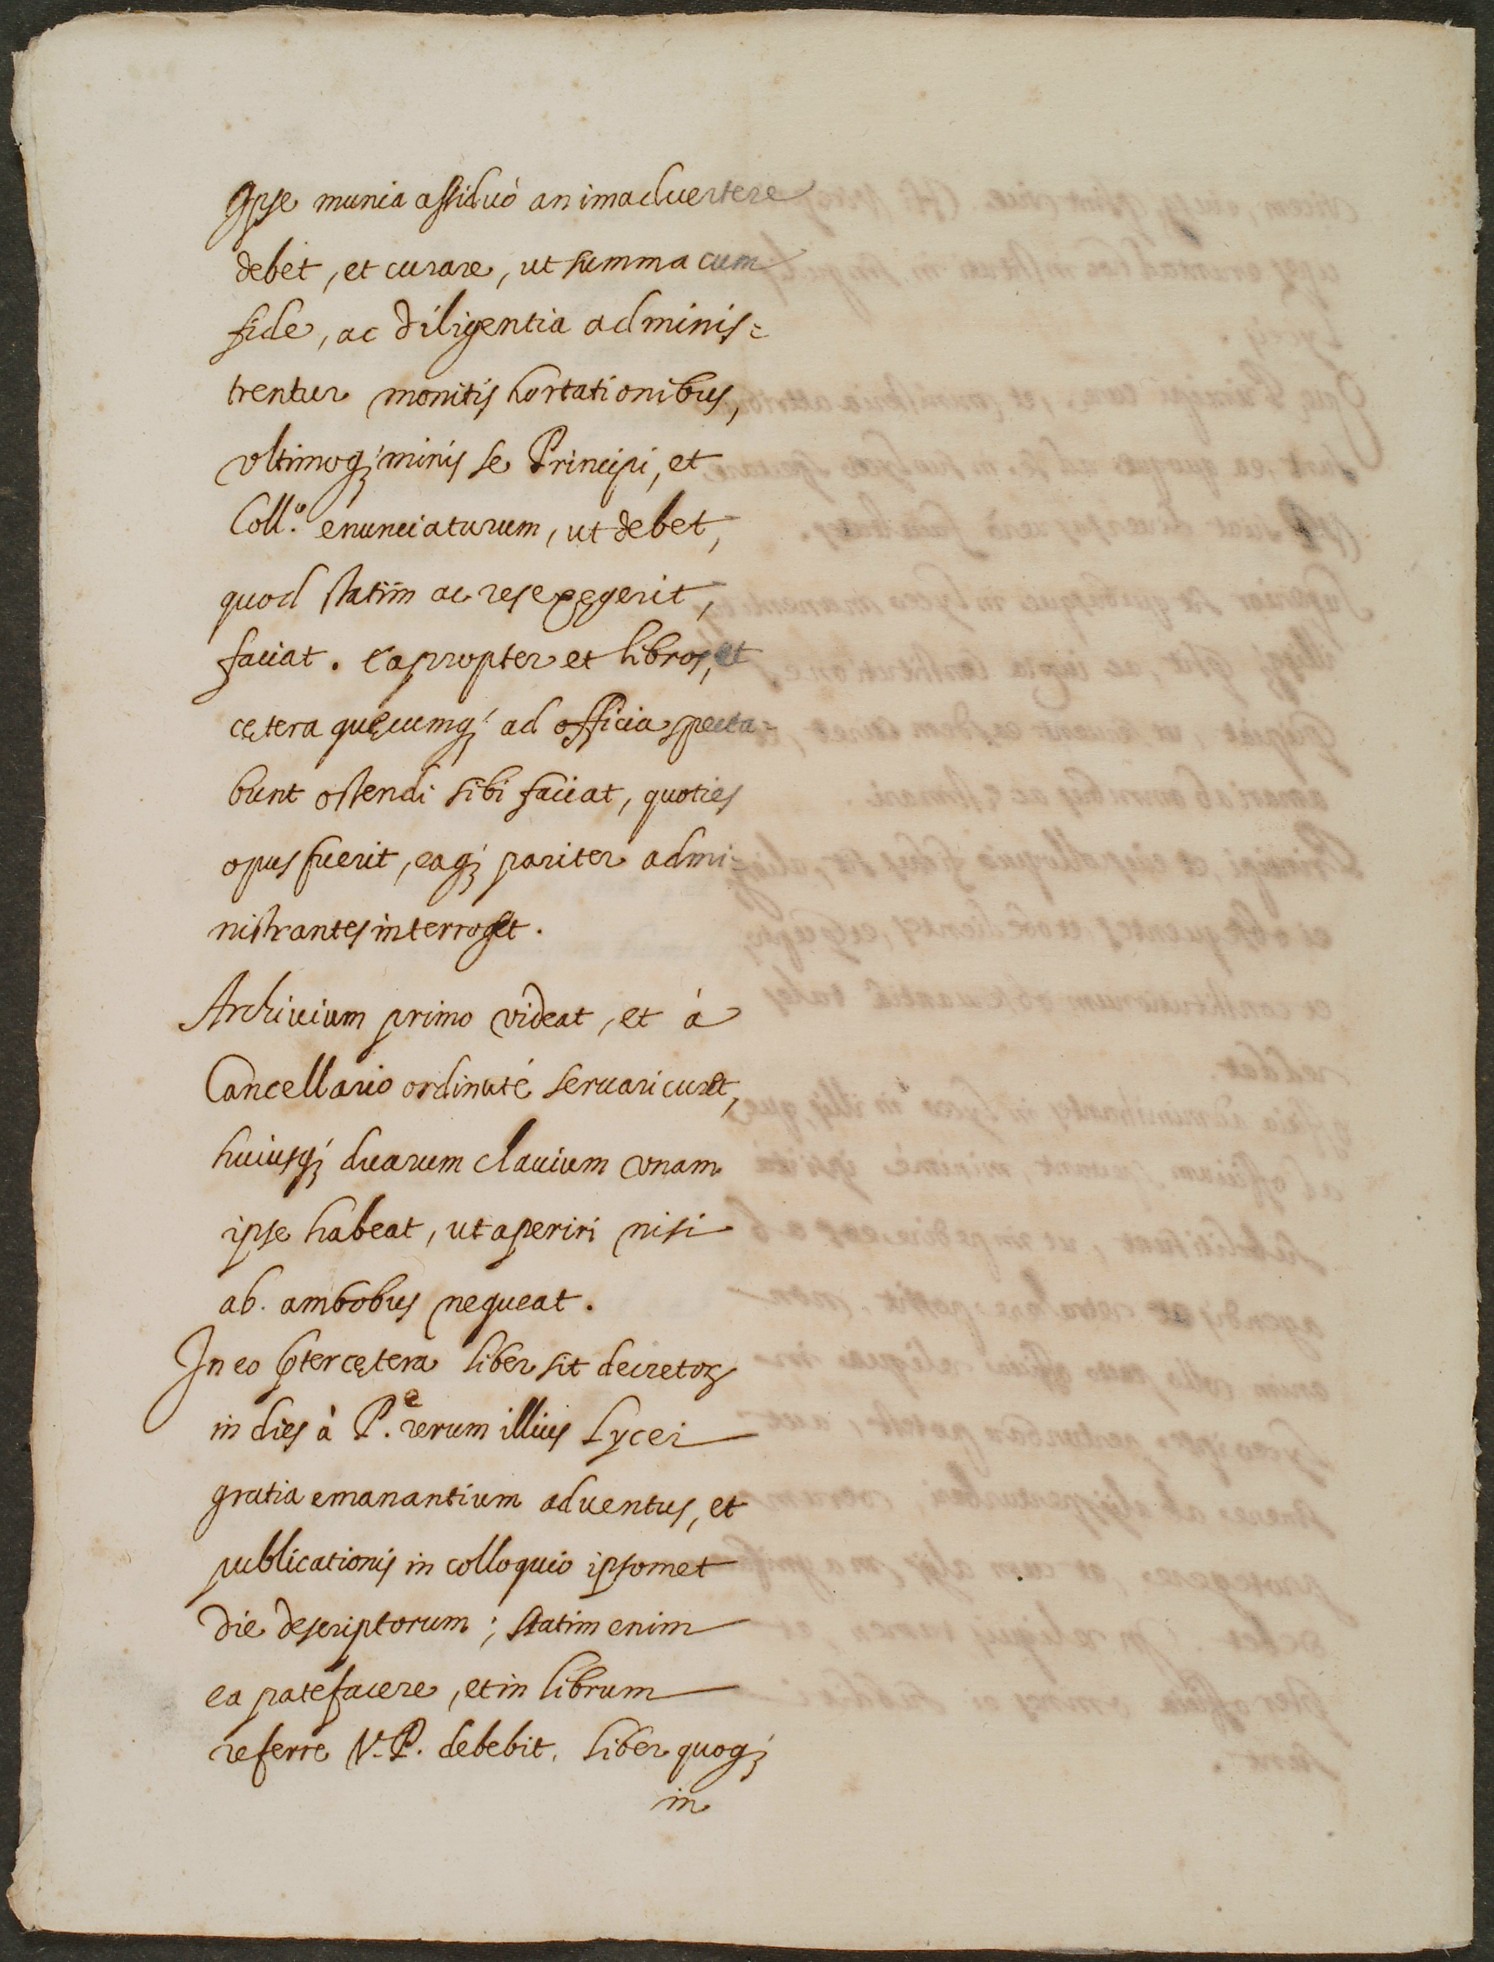 Ipse munia assiduò animaduertere
debet, et curare, ut summa cum
fide, ac diligentia adminis=
trentur monitis hortationibus,
vltimoq; minis se Principi, et
Coll.º enunciaturum, ut debet,
quod statim ac res exegerit,
faciat. eapropter et libros, et
cętera quęcumq; ad officia specta=
bunt ostendi sibi faciat, quoties
opus fuerit, eaq; pariter admi=
nistrantes interroget.
Archiuium primo videat, et à
Cancellario ordinaté seruari curet,
huiusq; duarum clauium vnam
ipse habeat, ut aperiri nisi
ab. ambobus nequeat.
In eo p̱ter cętera liber sit decretoꝝ
in dies à P.e rerum illius Lycei
gratia emanantium aduentus, et
publicationis in colloquio ipsomet
die descriptorum; statim enim
ea patefacere, et in librum
referre V. P. debebit. Liber quoq;
in